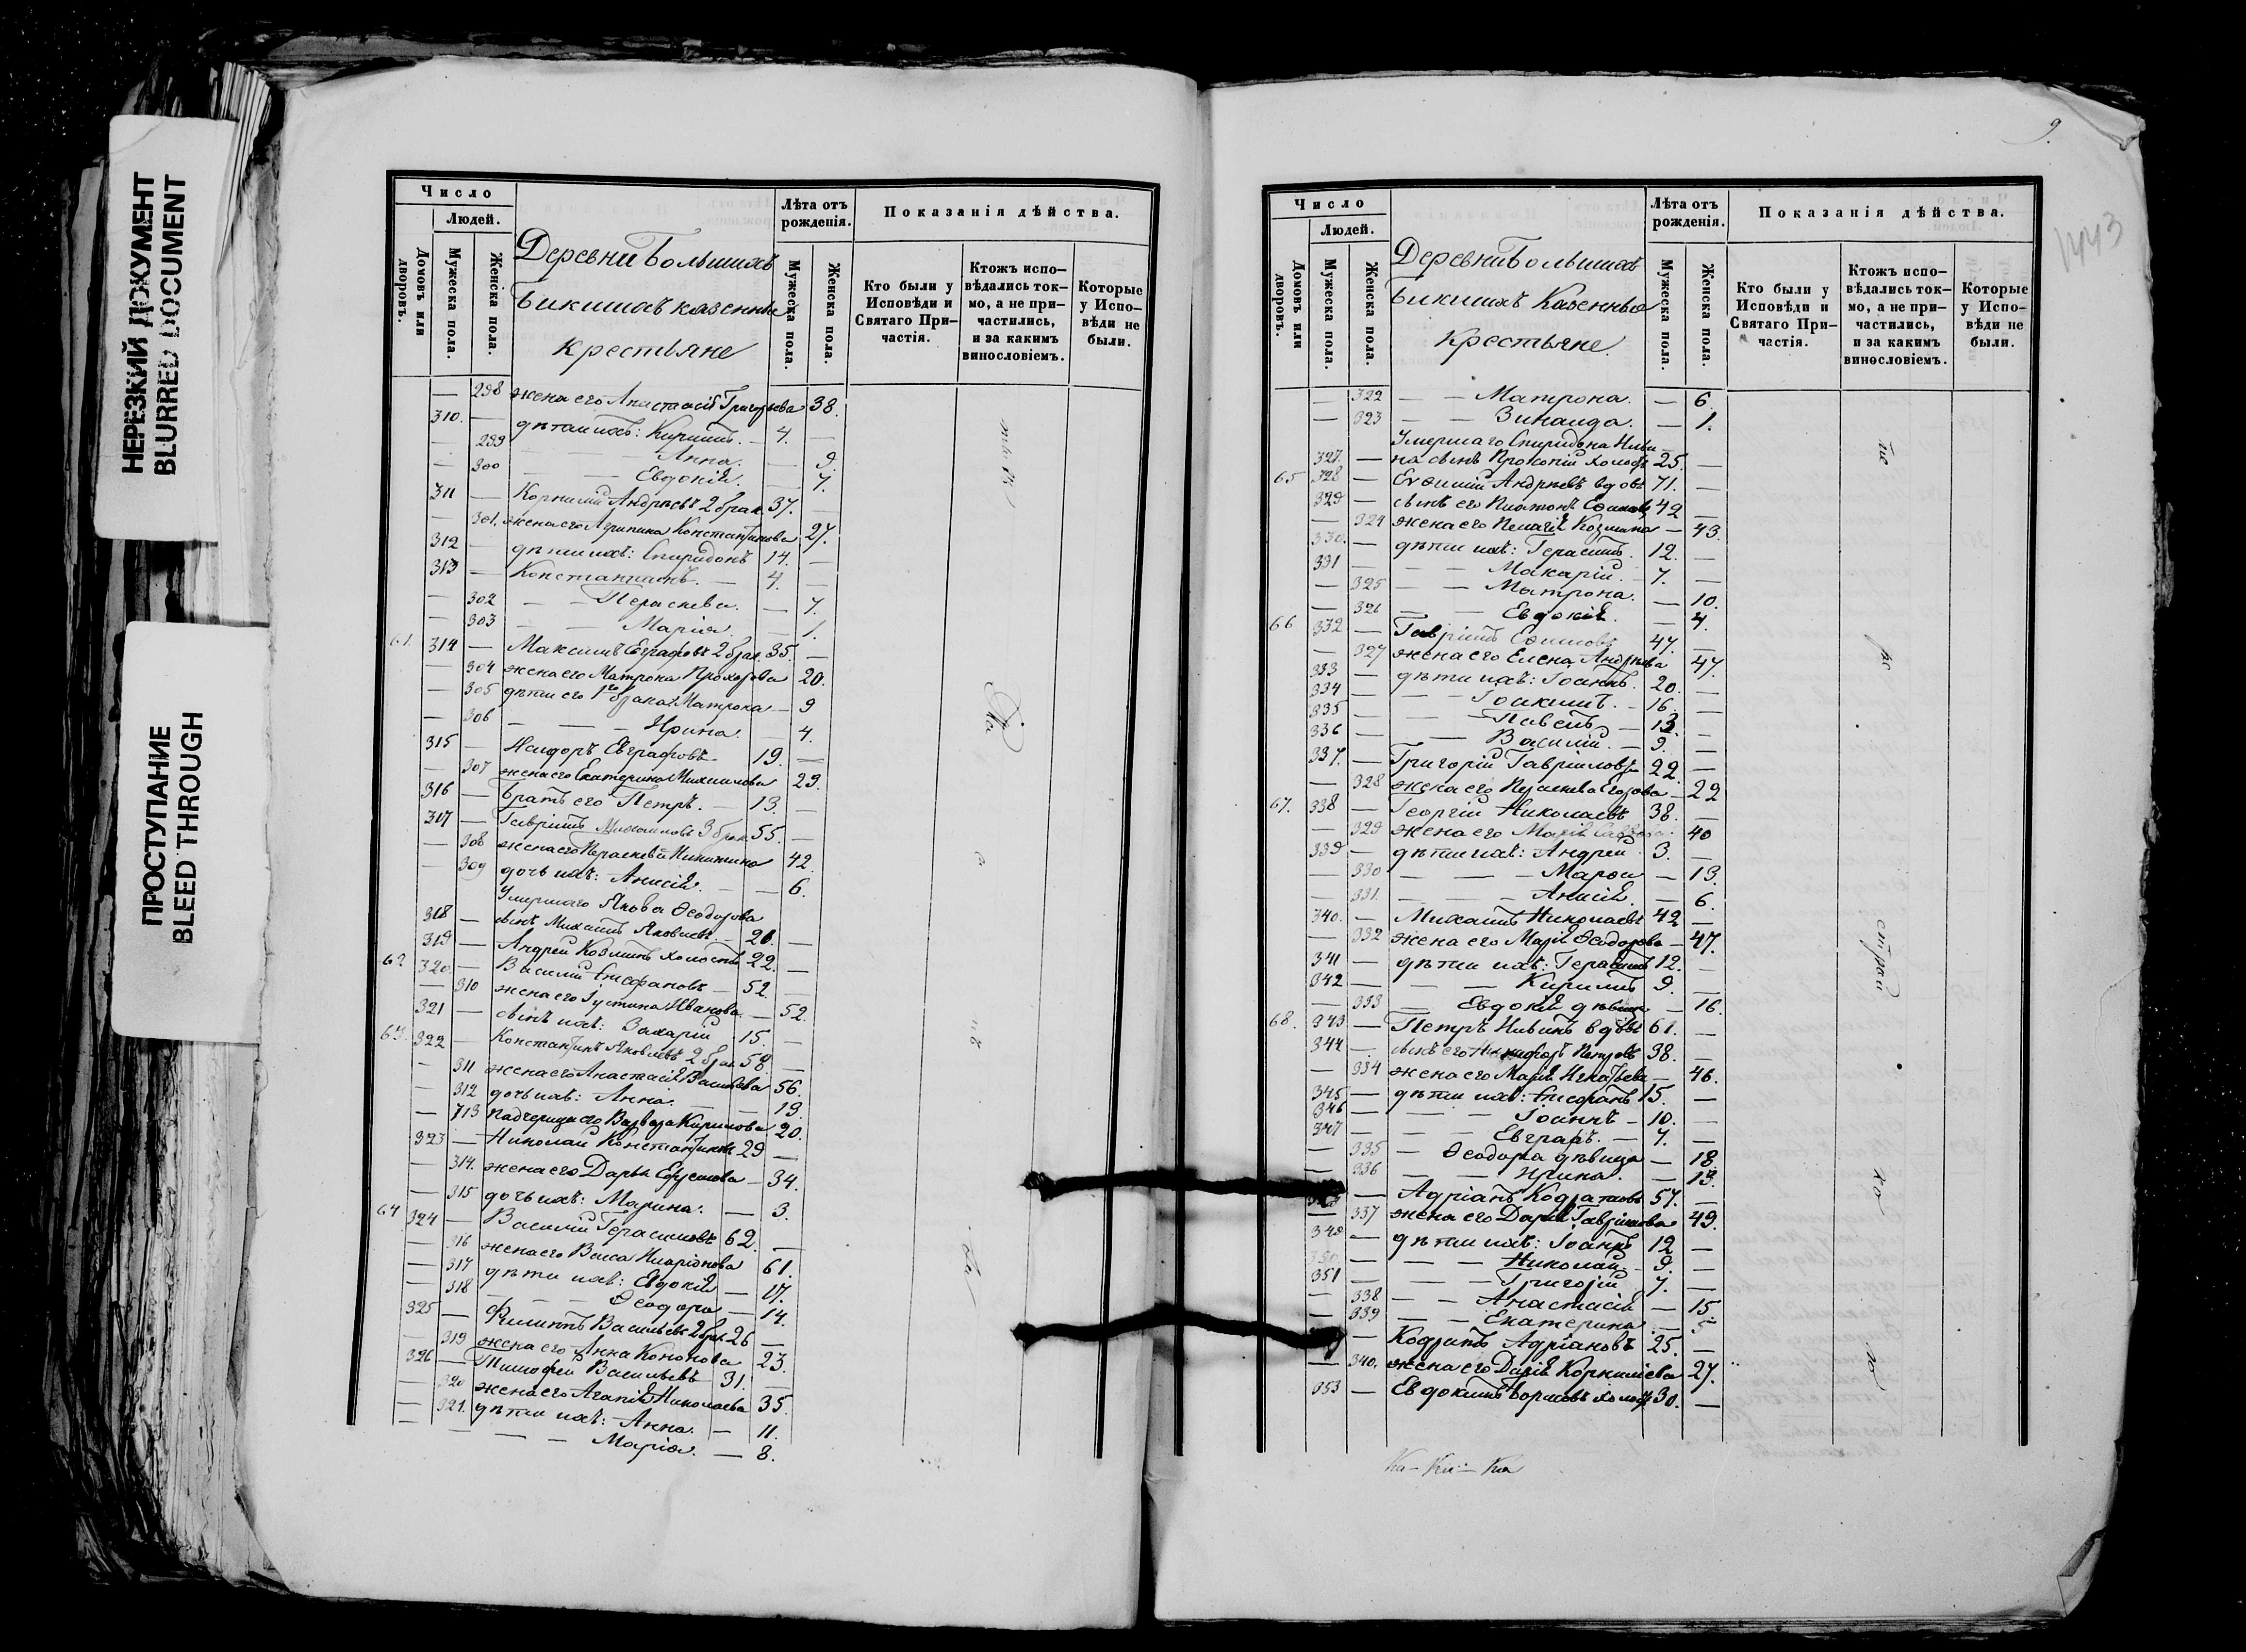 НЕРЕЗКИЙ ДОКУМЕНТ
BLURRED DOCUMENT
ПРОСТУПАНИЕ
BLEED THROUGH
Число
Людей.
Домовъ или дворовъ.
Мужеска пола.
Женска пола.
Деревни Большихъ
Бикшихъ казенные
крестьяне
Лѣта отъ рожденія.
Мужеска пола.
Женска пола.
Показанія дѣйства.
Кто были у Исповѣди и Святаго При-частія.
Ктожъ испо-вѣдались ток-мо, а не при-частились, и за какимъ винословіемъ.
Которые у Испо-вѣди не были.
— 298 жена его Анастасія Григорьева 38.
310. — дѣти ихъ: Кириллъ. — 4. —
— 299 — — Анна. — 9.
— 300 — — Евдокія. — 7.
311 — Корнилій Андреевъ 2 брак. 37. —
— 301. жена его Агрипина Константинова 27.
312 — дѣти ихъ: Спиридонъ 14. —
313 — Константинъ. — 4. —
— 302 — — Параскева. — 7.
— 303 — — Марія. — 1.
61. 314 — Максимъ Евграфовъ 2 брак. 35. —
— 304 жена его Матрона Прохорова 20.
— 305 дѣти его 1го брака: Матрона — 9
— 306 — — Ирина. — 4.
315 — Исидоръ Евграфовъ 19. —
— 307 жена его Екатерина Михаилова 29.
316 — Братъ его Петръ. — 13. —
317 — Гавріилъ Михаиловъ 3 брак. 55. —
— 308 жена его Параскевія Никитина 42.
— 309 дочь ихъ: Анисія. — — 6.
Умершаго Якова Ѳеодорова
318 — сынъ Михаилъ Яковлевъ. — 20. —
319 — Андрей Козминъ холостъ 22. —
62 320. — Василій Стефановъ — 52. —
— 310 жена его Іустина Иванова — 52.
321 — сынъ ихъ: Захарій — 15. —
63. 322 — Константинъ Яковлевъ 2 брак. 58. —
— 311 жена его Анастасія Васильева 56.
— 312 дочь ихъ: Анна. — — 19.
— 713 падчерица его Варвара Кирилова 20.
323 — Николай Константиновъ 29 —
— 314. жена его Дарья — 34.
— 315 дочь ихъ: Марина. — 3.
64 324 — Василій Герасимовъ 62. —
— 316 жена его Васса Иларіонова 61.
— 317 дѣти ихъ: Евдокія — 17.
— 318 — — Ѳеодора — 14.
325 — Филиппъ Васильевъ 2 брак. 26 —
— 319 жена его Анна Кононова 23.
326 — Тимофей Васильевъ 31.
— 320 жена его Агапія Николаева 35.
— 321. дѣти ихъ: Анна. — 11.
— — — Марія. — 8.
9.
1443
Число
Людей.
Домовъ или дворовъ.
Мужеска пола.
Женска пола.
Деревни Большихъ
Бикшихъ Казенные
Крестьяне.
Лѣта отъ рожденія.
Мужеска пола.
Женска пола.
Показанія дѣйства.
Кто были у Исповѣди и Святаго При-частія.
Ктожъ испо-вѣдались ток-мо, а не при-частились, и за какимъ винословіемъ.
Которые у Испо-вѣди не были.
— 322 — — Матрона. — 6.
— 323 — — Зинаида. — 1.
Умершаго Спиридона Ильи-
327. — на сынъ Прокопій холостъ 25. —
65 328 — Евѳимій Андреевъ вдовъ 71. —
329 — сынъ его Платонъ 42 —
— 324 жена его Пелагія Козмина — 43.
330. — дѣти ихъ: Герасимъ. 12. —
331 — — Макарій. — 7. —
— 325 — — Матрона. — 10.
— 326 — — Евдокія. — 4.
66 332 — Гавріилъ Ефимовъ 47. —
— 327 жена его Елена Андреева 47.
333 — дѣти ихъ: Іоаннъ. 20. —
334 — — Іоакимъ. — 16. —
335 — — Павелъ — 13. —
336 — — Василій. — 9. —
337. — Григорій Гавріиловъ 22. —
— 328 жена его Параскева Егорова — 22
67. 338 — Георгій Николаевъ 38. —
— 329 жена его Марія 40
339 — дѣти ихъ: Андрей. 3. —
— 330 — — — Марѳа — 13.
— 331. — — — Анисія. — 6.
340. — Михаилъ Николаевъ 42 —
— 332 жена его Марія Ѳеодорова — 47.
341 — дѣти ихъ: Герасимъ 12. —
342 — — — Кириллъ 9. —
— 333 — Евдокія дѣвица — 16.
68. 343 — Петръ Ильинъ вдовъ 61. —
344 — сынъ его Никифоръ Петровъ 38. —
— 334 жена его Марія Игнатьева — 46.
345 — дѣти ихъ: Стефанъ 15. —
346 — — Іоаннъ — 10. —
347 — — Евграфъ. — 7. —
— 335 — Ѳеодора дѣвица — 18.
— 336 — — Ирина. — 13.
— Адріанъ Кодратовъ 57. —
— 337 жена его Дарія Гавріилова 49.
349 — дѣти ихъ: Іоаннъ 12 —
350. — — Николай — 9. —
351 — — Григорій 7. —
— 338 — — Анастасія — 15
— 339 — — Екатерина — 5
— Кодратъ Адріановъ 25. —
— 340. жена его Дарія Корниліева 27.
353 — Евдокимъ холостъ 30. —